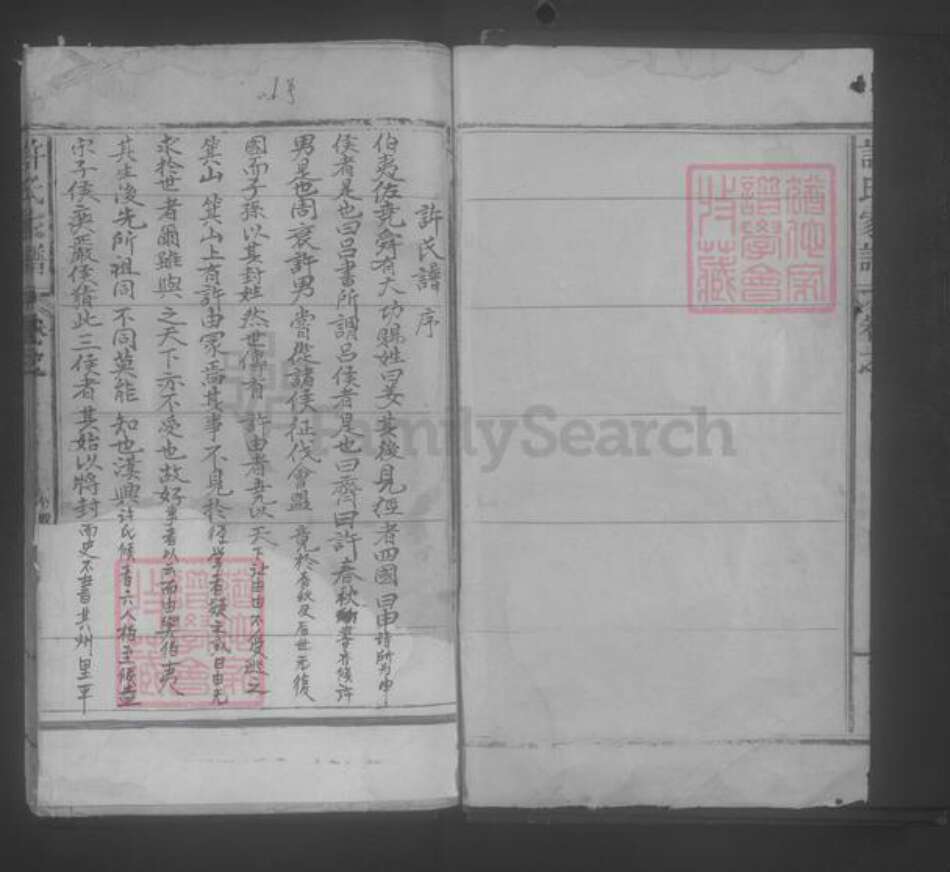 許氏譜序
伯夷佐堯舜有大功賜姓曰姜其後見經者四國曰申詩所為申
侯者是也曰呂書所謂呂侯者是也曰齊曰許春秋書許
男是也周衰許男嘗從諸侯征伐會盟竟於春秋及后世无復
國而子孫以其封姓然世傳有許由者堯以天下让由由不受逃之
箕山箕山上有許由冢焉其事不見於經學者疑之或曰由无
求於世者爾雖與之天下亦不受也故好事者以云而由與伯夷
其生後先所祖同不同莫能知也漢興許氏候者六人柏至候盎
宋子侯瘛嚴侯猜此三侯者其始以將封而史不書其州里平
許氏家譜
卷之
許氏家譜
卷之
FamilySearch
譜學會